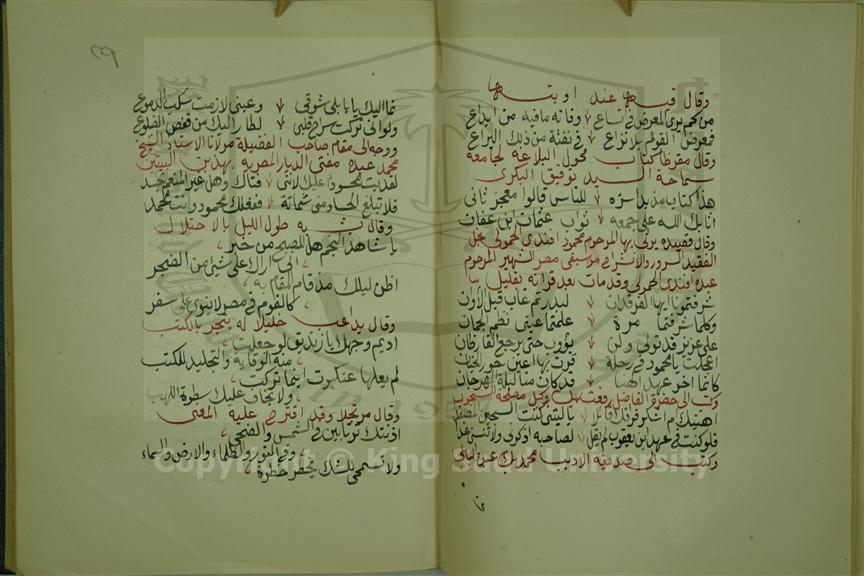 وقال فيها عند اوبتها
من كم يرى المعرض في اتساع وفاته ما فيه من ابداع
فمعرض القوم بلا نزاع في نفثة من ذلك اليراع
وقال مقرظا كتاب فحول البلاغه لجامعه
سماحة السيد توفيق البكرى
هذا كتاب مذ بدا سره للناس قالوا معجز ثانى
اثابك الله على جمعه ثواب عثمان ابن عفان
وقال قصيده يرثى بها المرحوم محمود افندى الحمولى نجل
الفقيد موسيقى مصر الشهير المرحوم
عبده افندى الحمولى وقد مات بعد قرانه بقليل
شرفتمونا ايها الفرقدان لبدر تم غاب قبل الأوان
وكلما شرفتما مرة علمتما عينى نظم الجمان
على عزيز قد تولى ولن يؤوب حتى يرجع القارظان
اعجلت يا محمود فى رحلة قرت بها اعين حور الجنان
كانما اخر عهد الهنا قد كان منا ليلة المهرجان
وكتب الى حضرة الفاضل وكيل مصلحة السجون
اهنيك ام اشكو فراقك قائلا ياليتنى كنت السجين المصفدا
فلو كنت فى عهد ابن يعقوب لم يقل لصاحبه اذكرنى ولا تنسنى غدا
وكتب الى صديقه الاديب محمد بك عبده البابلى
٣٩
نما اليك يا بابلى شوقى وعينى لازمت سكب الدموع
ولو انى تركت سراح قلبى لطار اليك من قفص الضلوع
ورفعه الى مقام صاحب الفضيلة مولانا الاستاذ الشيخ
محمد عبده مفتى الديار المصريه بهذين البيتين
لقد بت محسودا عليك لاننى فتاك وهل غير المنعم يحسد
فلا تبلغ الحساد منى شماتة ففعلك محمود وانت محمد
وقال يشبه طول الليل بالاحتلال
يا ساهد النجم هل للصبح من خبر
انى اراك على شئ من الضجر
اظن ليلك مذ قام المقام به
كالقوم فى مصر لا ينوى على سفر
وقال يداعب خليلا له يتجر بالكتب
اديم وجهك يا زنديق لو جعلت
منه الوقاية والتجليد للكتب
لم يعلها عنكبوت اينما تركت
ولا تخاف عليك سطوة اللهب
وقال مرتجلا وقد اقترح عليه المعنى
اذنتك ترتابين فى الشمس والضحى
وفى النور والظلماء والارض والسماء
ولا تسمحى للشك يخطر خطرة
Copyright © King Saud University